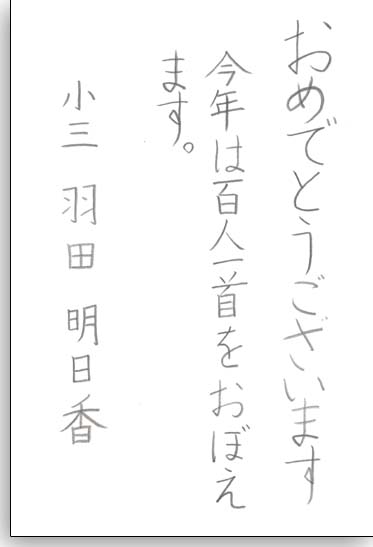 おめでとうございます
今年は百人一首をおぼえ
ます。
小三 羽田 明日香